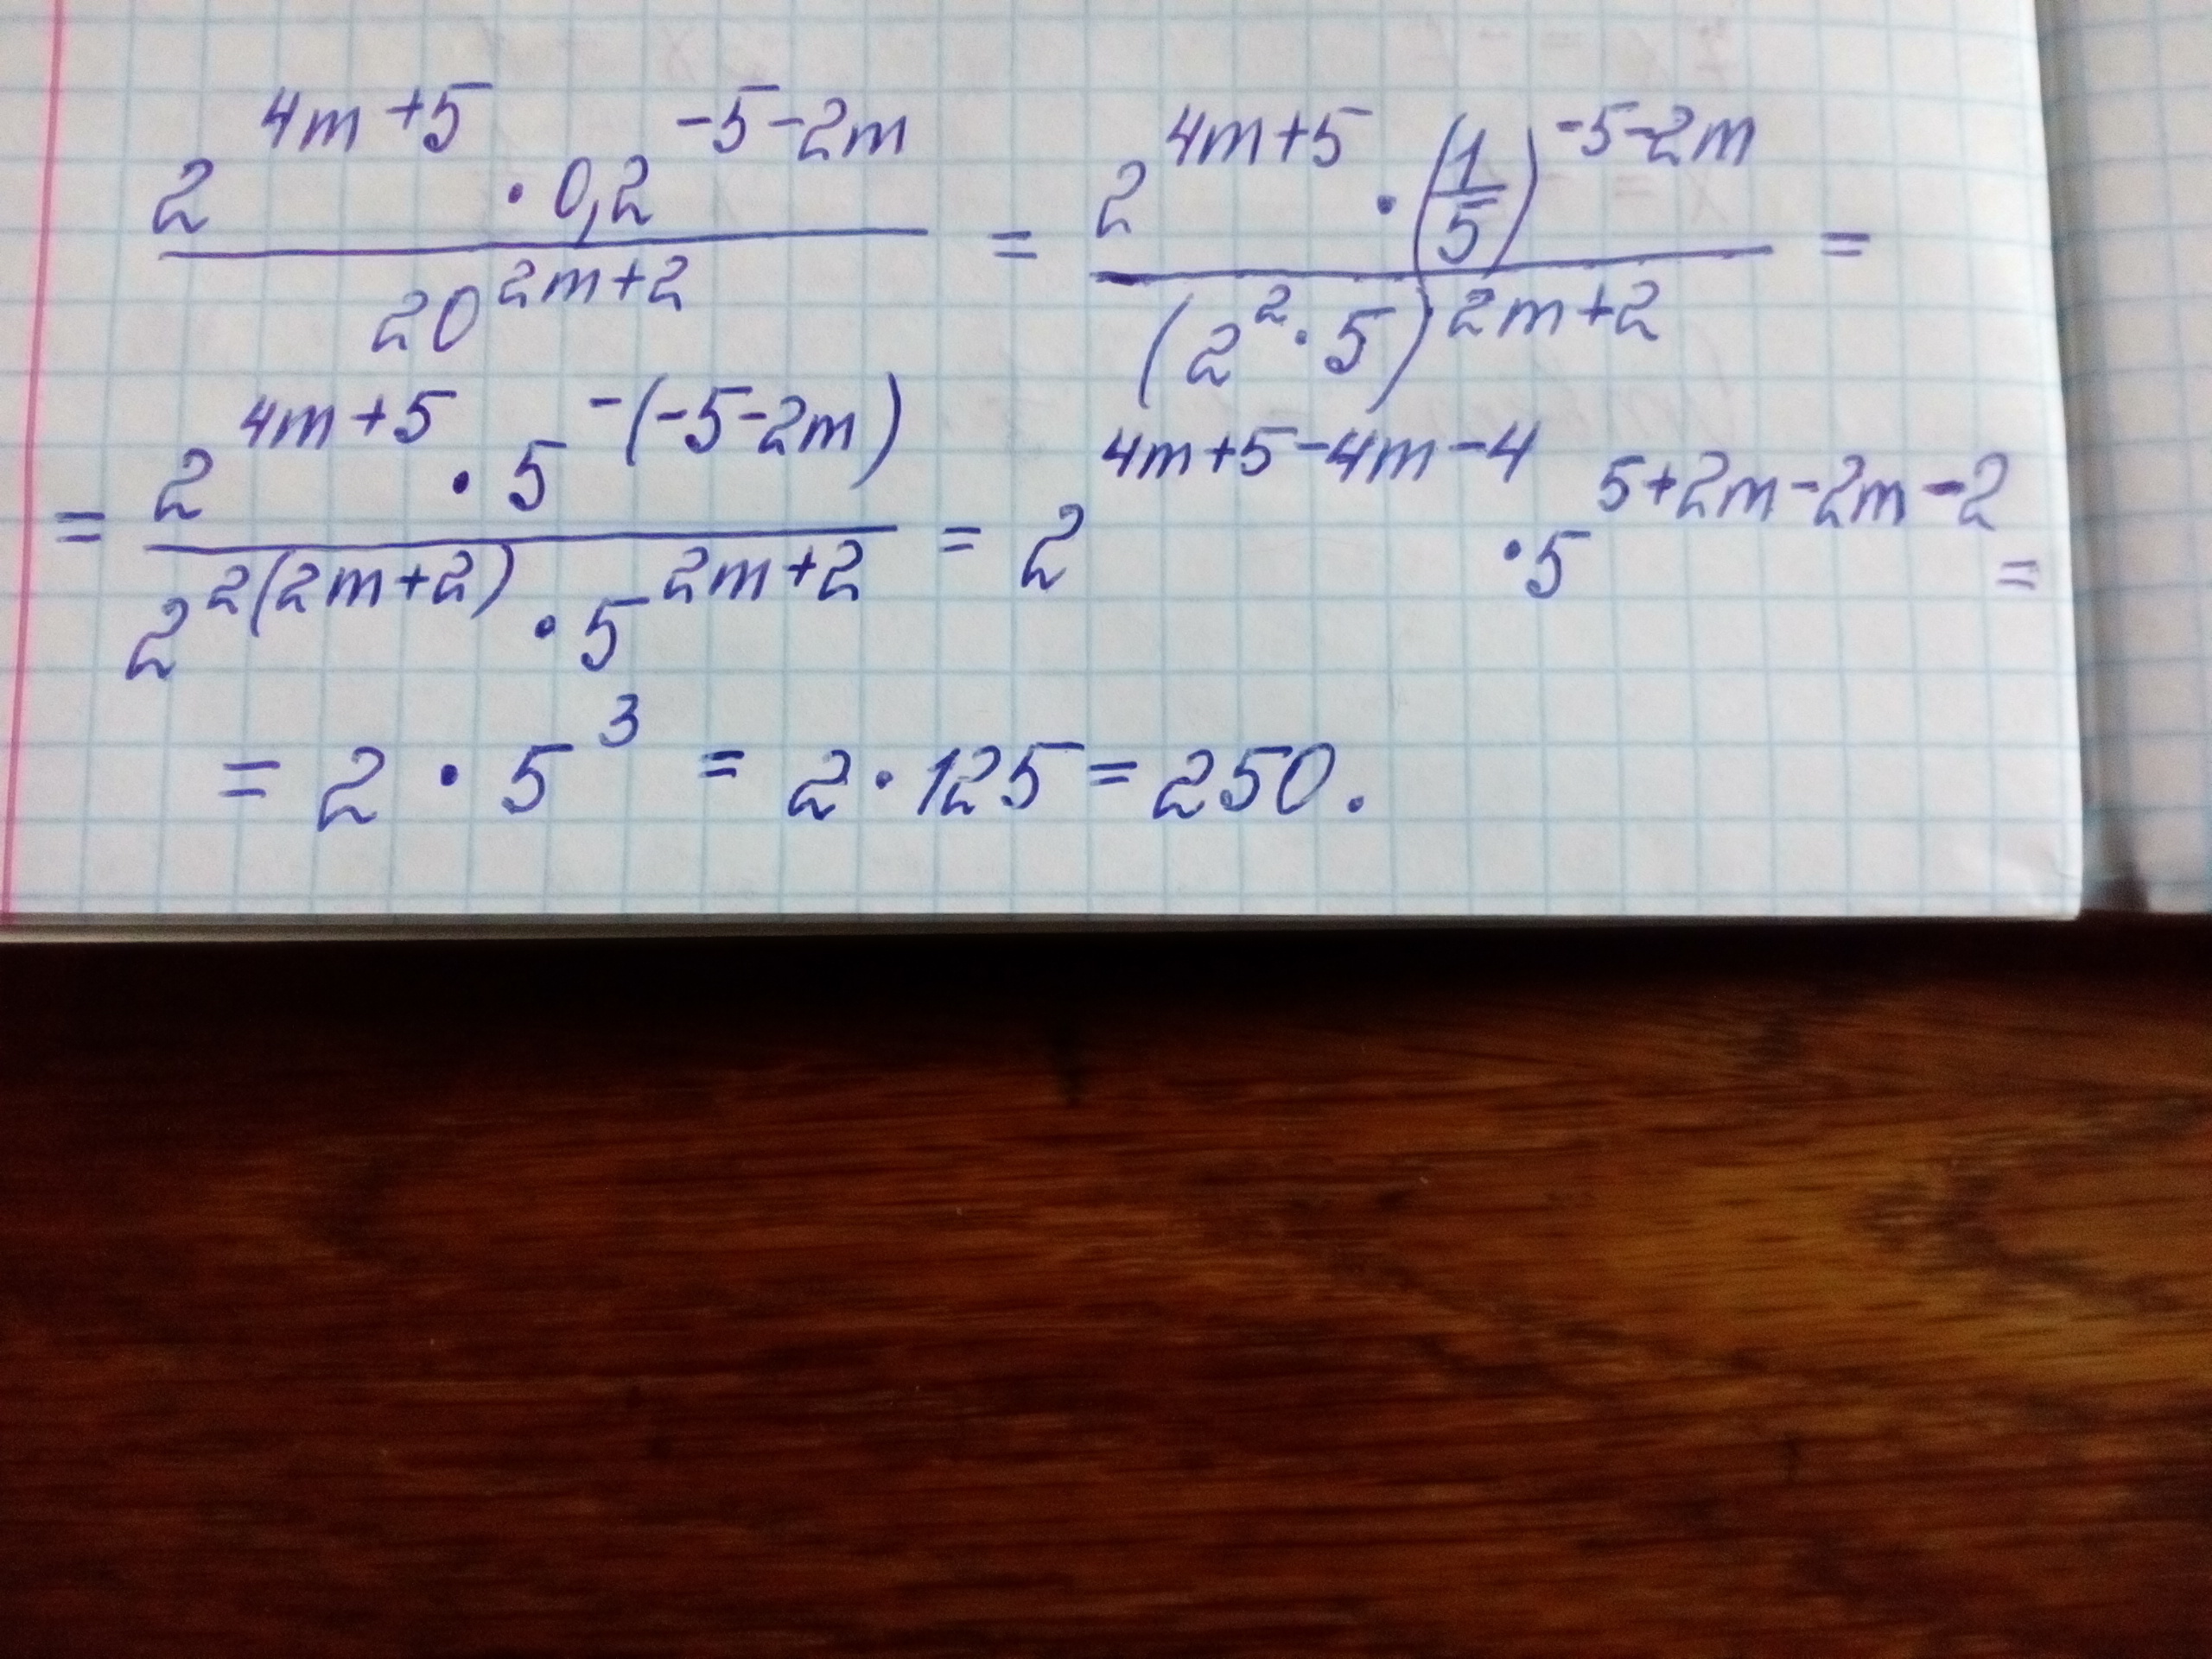 \frac{2^{4m+5} \cdot 0,2^{-5-2m}}{20^{2m+2}} = \frac{2^{4m+5} \cdot \left(\frac{1}{5}\right)^{-5-2m}}{(2^2 \cdot 5)^{2m+2}} =
= \frac{2^{4m+5} \cdot 5^{-(-5-2m)}}{2^{2(2m+2)} \cdot 5^{2m+2}} = 2^{4m+5-4m-4} \cdot 5^{5+2m-2m-2} =
= 2 \cdot 5^3 = 2 \cdot 125 = 250.